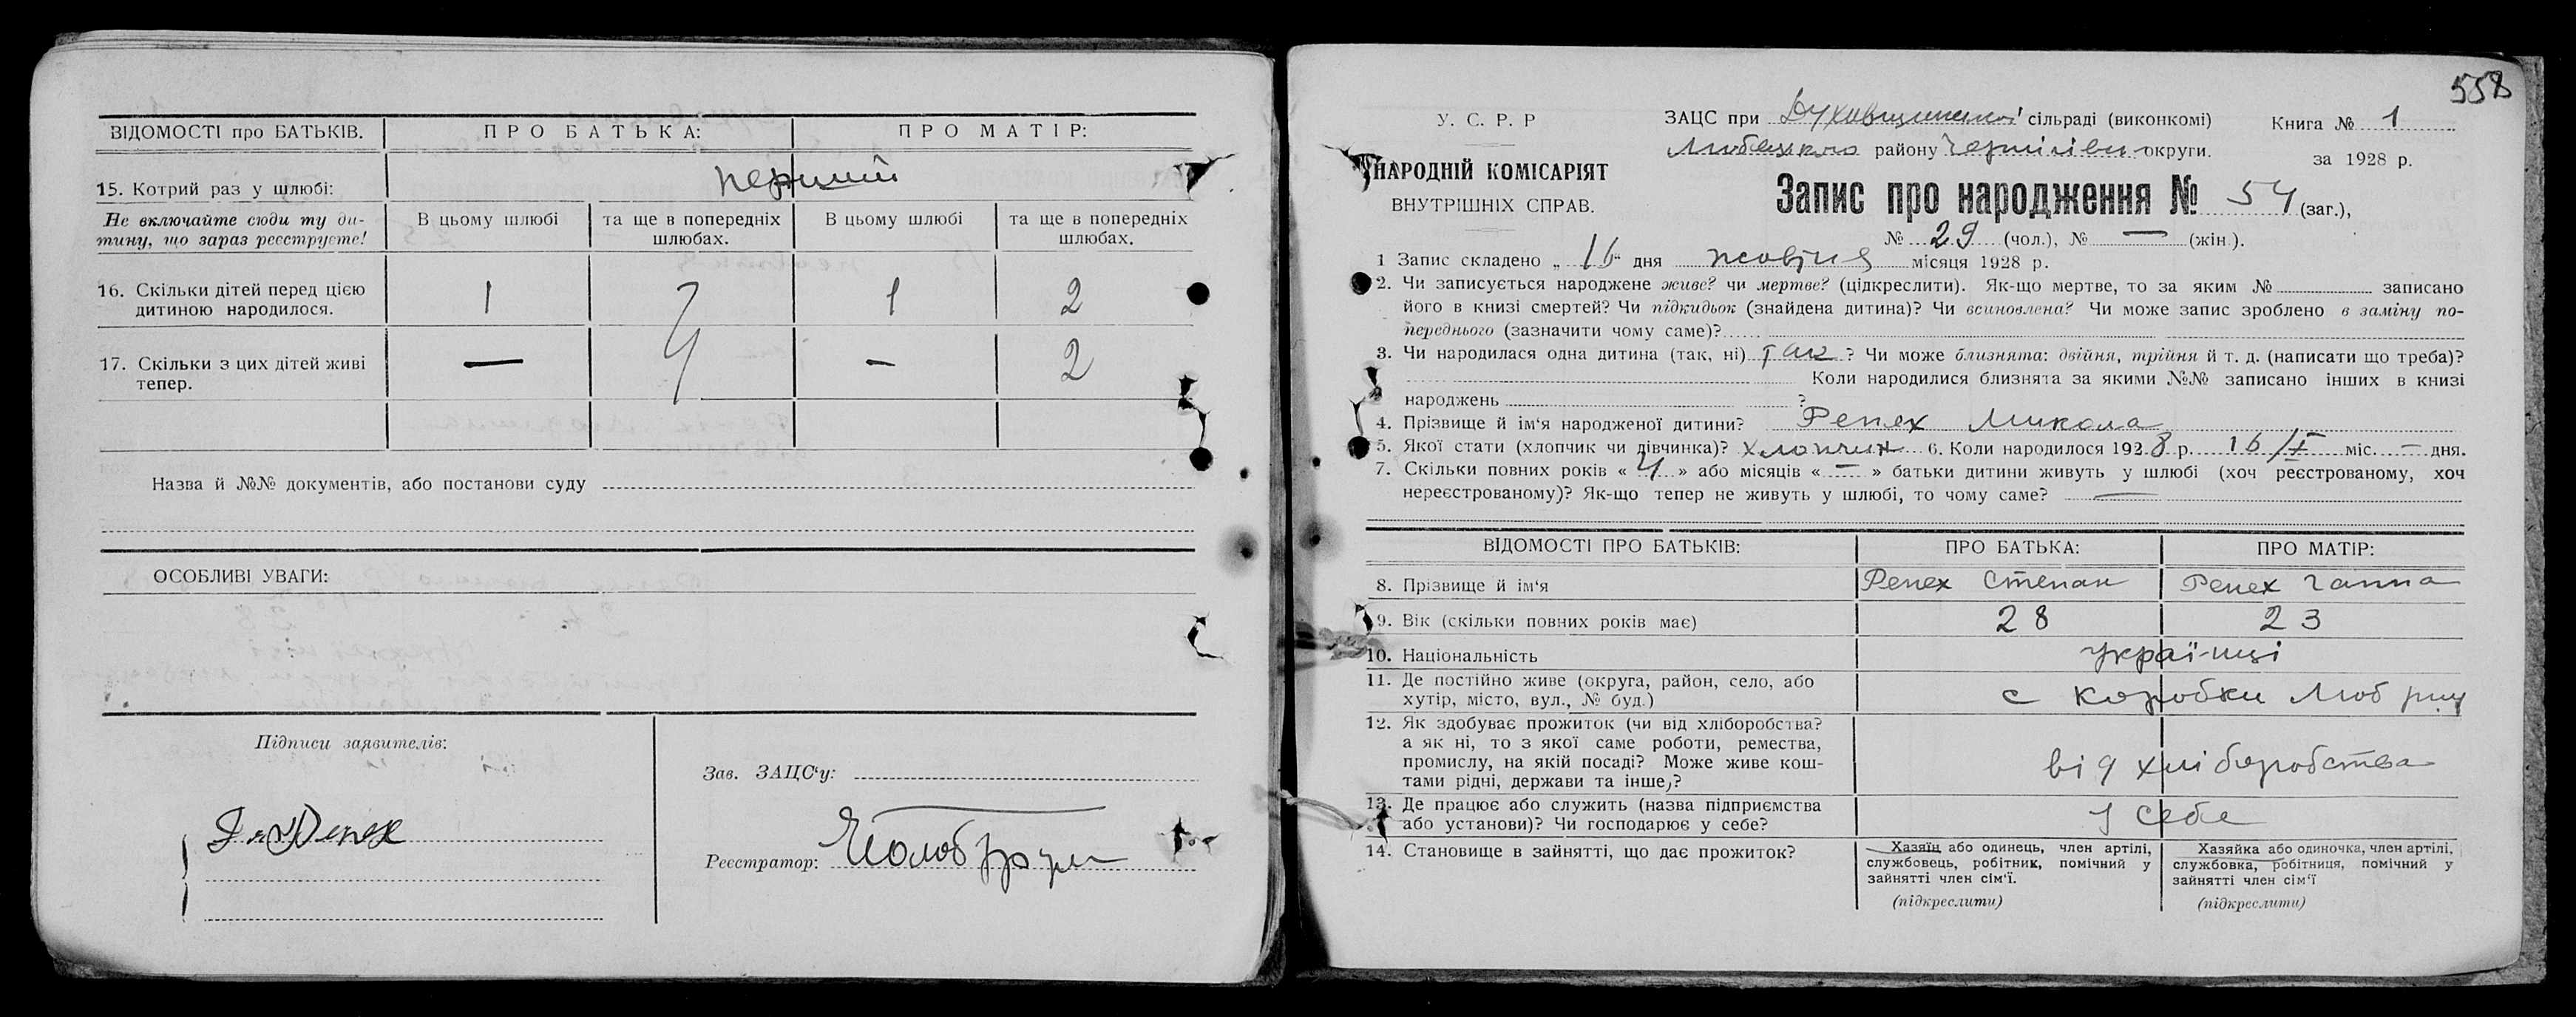 ВІДОМОСТІ про БАТЬКІВ.
ПРО БАТЬКА:
ПРО МАТІР:
15. Котрий раз у шлюбі:
перший
Не включайте сюди ту ди-
тину, що зараз реєструєте!
В цьому шлюбі
та ще в попередніх
шлюбах.
В цьому шлюбі
та ще в попередніх
шлюбах.
16. Скільки дітей перед цією
дитиною народилося.
1
1
2
17. Скільки з цих дітей живі
тепер.
—
—
2
Назва й №№ документів, або постанови суду
ОСОБЛИВІ УВАГИ:
Підписи заявителів:
Зав. ЗАЦС'у:
Репех
Реєстратор:
558
У. С. Р. Р
НАРОДНІЙ КОМІСАРІЯТ
ВНУТРІШНІХ СПРАВ.
ЗАЦС при Духовщинській сільраді (виконкомі)
Любецького району Чернігівськ округи.
Книга № 1
за 1928 р.
Запис про народження № 54 (заг.),
№ 29 (чол.), № — (жін.).
1 Запис складено „16" дня жовтня місяця 1928 р.
2. Чи записується народжене живе? чи мертве? (цідкреслити). Як-що мертве, то за яким № записано
його в книзі смертей? Чи підкидьок (знайдена дитина)? Чи всиновлена? Чи може запис зроблено в заміну по-
переднього (зазначити чому саме)?
3. Чи народилася одна дитина (так, ні) так ? Чи може близнята: двійня, трійня й т. д. (написати що треба)?
Коли народилися близнята за якими №№ записано інших в книзі
народжень ?
4. Прізвище й ім'я народженої дитини? Репех Микола
5. Якої стати (хлопчик чи дівчинка)? Хлопчик 6. Коли народилося 1928 р. 16/X міс. — дня.
7. Скільки повних років « 4 » або місяців « — » батьки дитини живуть у шлюбі (хоч реєстрованому, хоч
нереєстрованому)? Як-що тепер не живуть у шлюбі, то чому саме? —
ВІДОМОСТІ ПРО БАТЬКІВ:
ПРО БАТЬКА:
ПРО МАТІР:
8. Прізвище й ім'я
Репех Степан
Репех Ганна
9. Вік (скільки повних років має)
28
23
10. Національність
українці
11. Де постійно живе (округа, район, село, або
хутір, місто, вул., № буд.)
с Коробки Люб
12. Як здобуває прожиток (чи від хліборобства?
а як ні, то з якої саме роботи, ремества,
промислу, на якій посаді? Може живе кош-
тами рідні, держави та інше,?
від хліборобства
13. Де працює або служить (назва підприємства
або установи)? Чи господарює у себе?
у себе
14. Становище в зайнятті, що дає прожиток?
Хазяїн або одинець, член артілі,
службовець, робітник, помічний у
зайнятті член сім'ї.
(підкреслити)
Хазяйка або одиночка, член артілі,
службовка, робітниця, помічний у
зайнятті член сім'ї
(підкреслити)